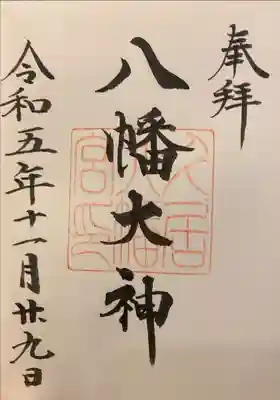 奉拝
八幡大神
令和五年十一月廿九日